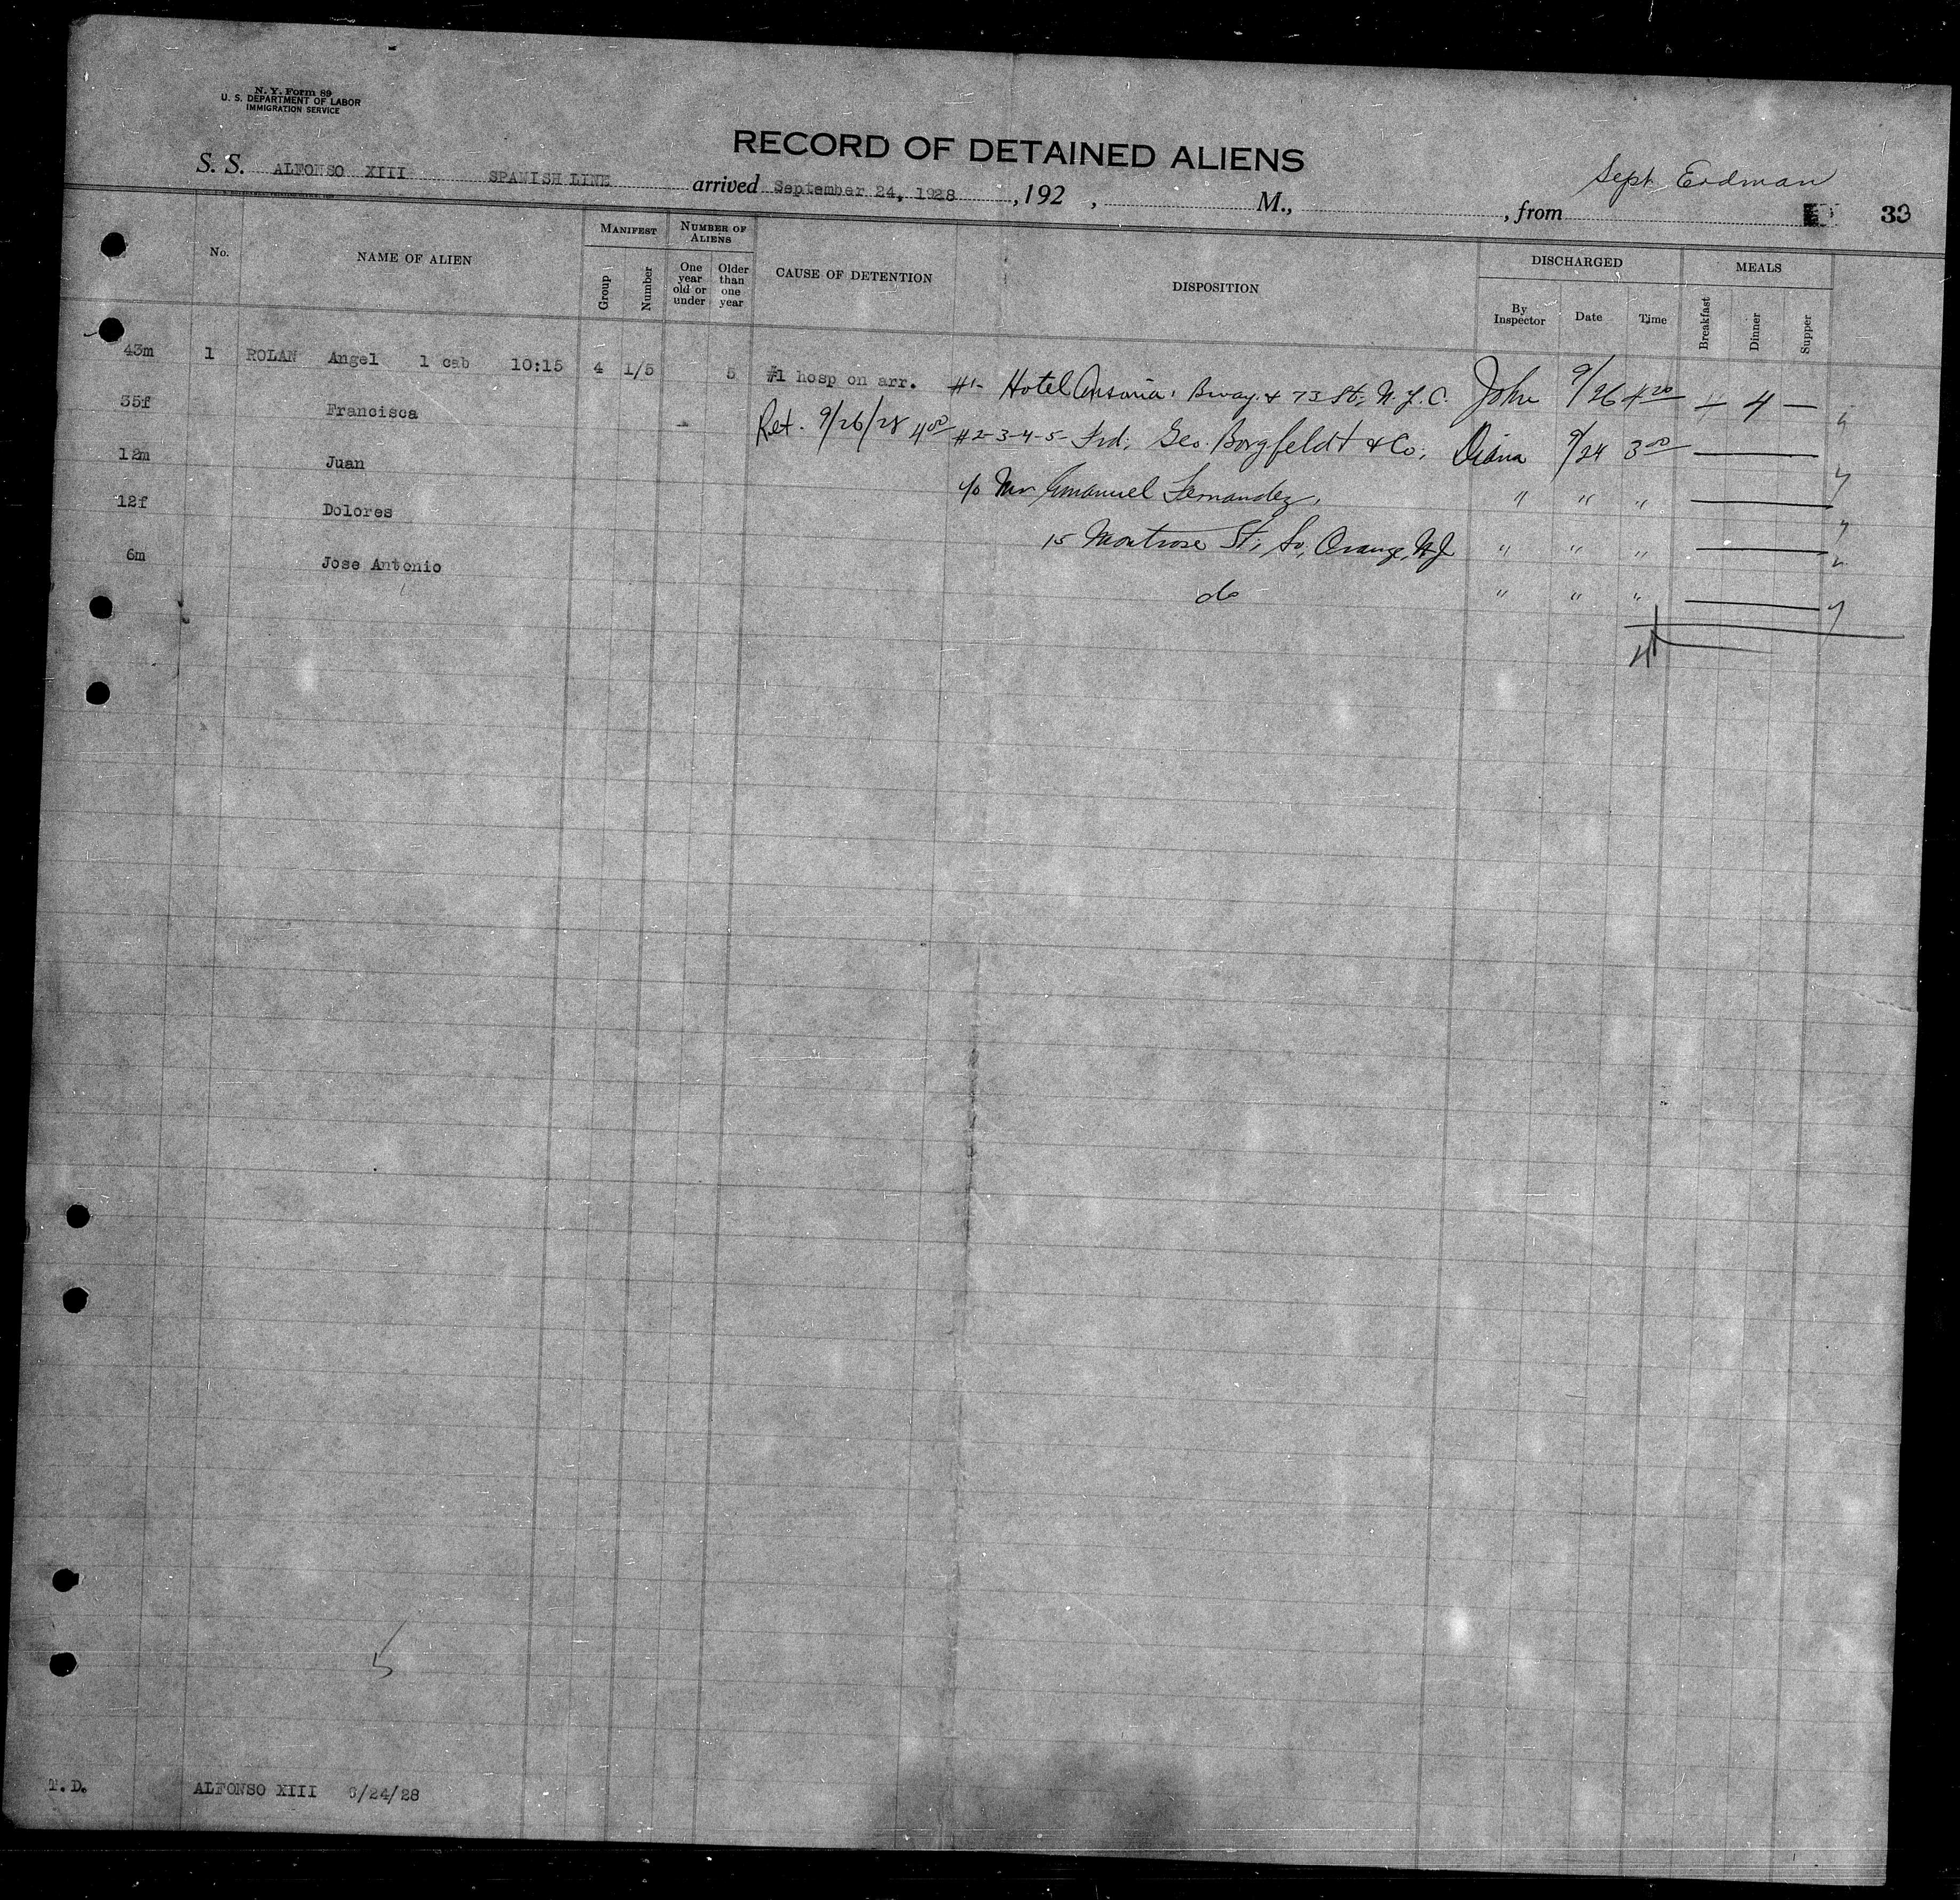 N. Y. Form 89
U. S. DEPARTMENT OF LABOR
IMMIGRATION SERVICE
RECORD OF DETAINED ALIENS
S. S. ALFONSO XIII SPANISH LINE arrived September 24, 1928, 192 , M., , from Sept Erdman 33
No. NAME OF ALIEN MANIFEST Group Number NUMBER OF ALIENS One year old or under Older than one year CAUSE OF DETENTION DISPOSITION DISCHARGED By Inspector Date Time MEALS Breakfast Dinner Supper
43m 1 ROLAN Angel 1 cab 10:15 4 1/5 5 #1 hosp on arr. #1- Hotel Ansonia, Bway & 73 St, N.Y.C. John 9/26 4 20 — 4 —
35f Francisca Ret. 9/26/28 4 00 #2-3-4-5- Frd, Geo. Borgfeldt & Co, Diana 9/24 3 00
12m Juan c/o Mr Emanuel Fernandez, " " "
12f Dolores 15 Montrose St, So, Orange, N.J " " "
6m Jose Antonio do " " "
T. D. ALFONSO XIII 9/24/28